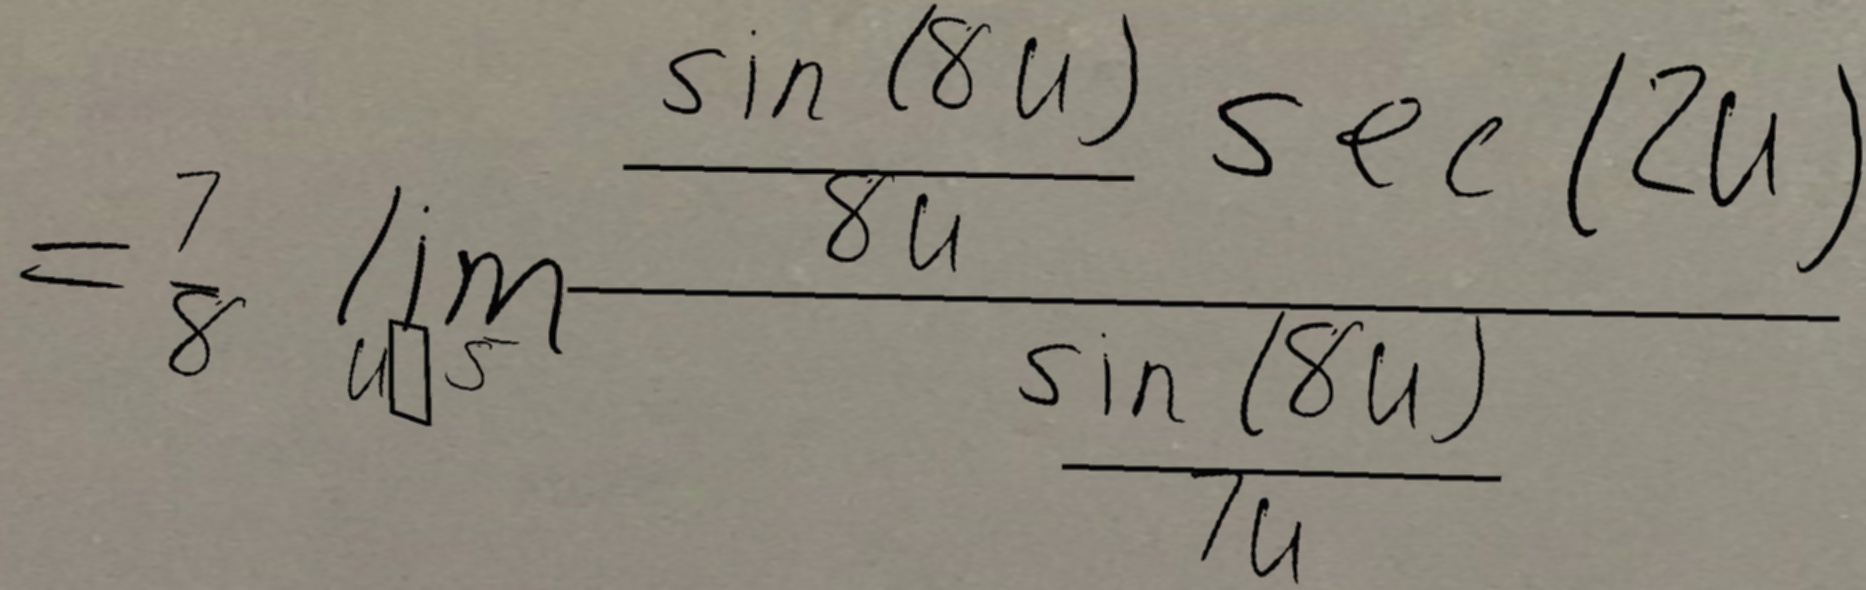 = \frac{7}{8} \lim_{u▯5} \frac{\frac{\sin(8u)}{8u} \sec(2u)}{\frac{\sin(8u)}{7u}}